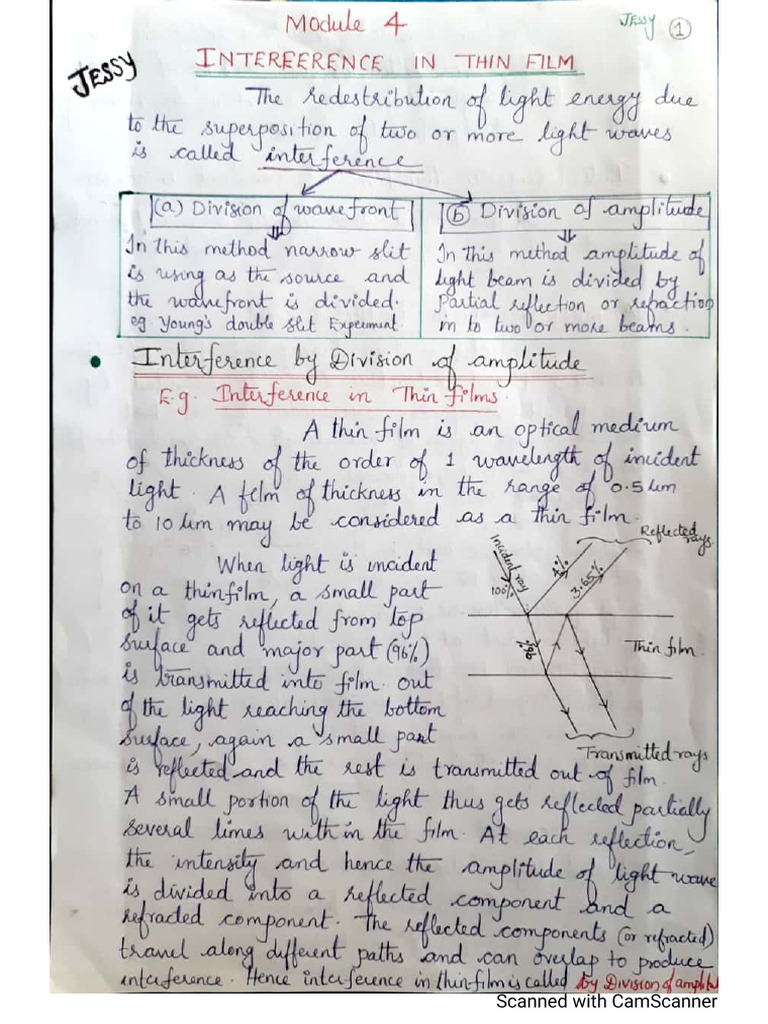 Module 4
JESSY 1
INTERFERENCE IN THIN FILM
JESSY
The redestribution of light energy due
to the superposition of two or more light waves
is called interference
(a) Division of wavefront
In this method narrow slit
is using as the source and
the wavefront is divided.
eg. Young's double slit Experiment.
(b) Division of amplitude
In this method amplitude of
light beam is divided by
Partial reflection or refraction
in to two or more beams.
• Interference by Division of amplitude
E.g. Interference in Thin films.
A thin film is an optical medium
of thickness of the order of 1 wavelength of incident
light. A film of thickness in the range of 0.5 µm
to 10 µm may be considered as a thin film.
When light is incident
on a thinfilm, a small part
of it gets reflected from top
surface and major part (96%)
is transmitted into film. out
of the light reaching the bottom
surface, again a small part
is reflected and the rest is transmitted out of film.
Reflected rays
Incident ray
100%
4%
3.65%
96%
Thin film.
Transmitted rays
A small portion of the light thus gets reflected partially
several times with in the film. At each reflection,
the intensity and hence the amplitude of light wave
is divided into a reflected component and a
refracted component. The reflected components (or refracted)
travel along different paths and can overlap to produce
interference. Hence interference in thinfilm is called by Division of amplitu
Scanned with CamScanner